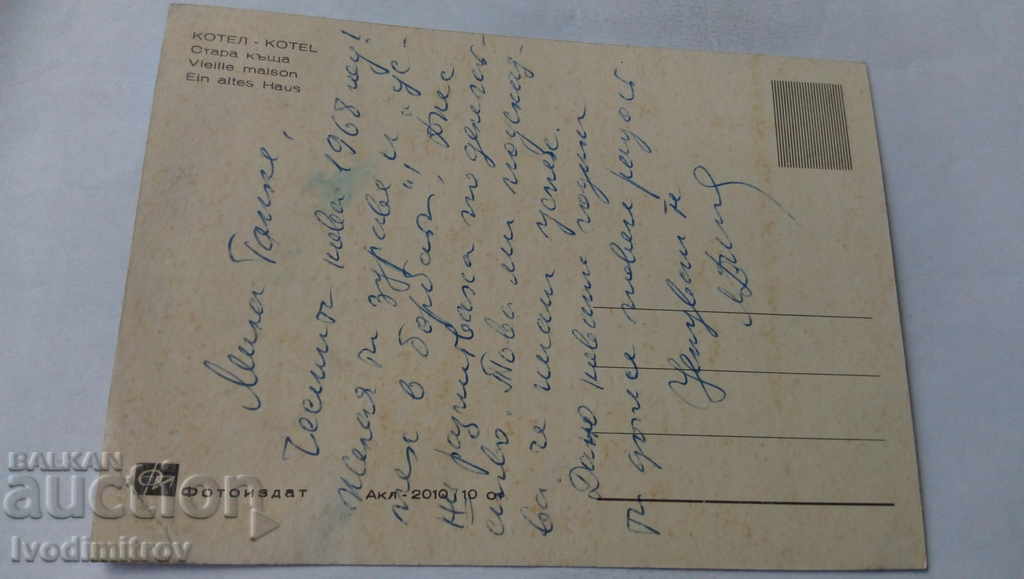 КОТЕЛ - KOTEL
Стара къща
Vieille maison
Ein altes Haus
Мила
Честита нова 1968 год!
Желая ти здраве и ус-
пех в борбата,
Не
ство. Това ми подсказ-
ва че имаш успех.
Дано новата година
ти донесе повече радост.
Целувам те
Фотоиздат
Акл-2010
BALKAN
auction
Ivodimitrov